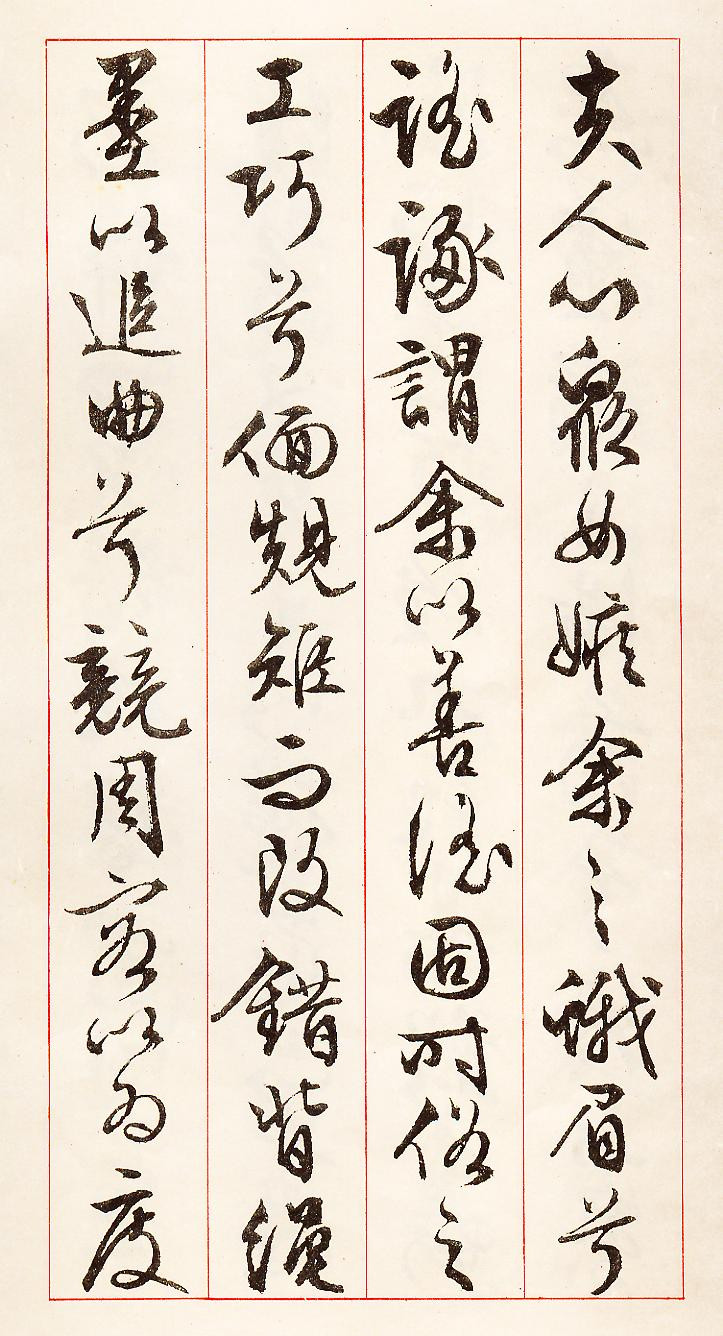 夫人心眾女嫉余之蛾眉兮
謠諑謂余以善淫固時俗之
工巧兮偭規矩而改錯背繩
墨以追曲兮競周容以為度